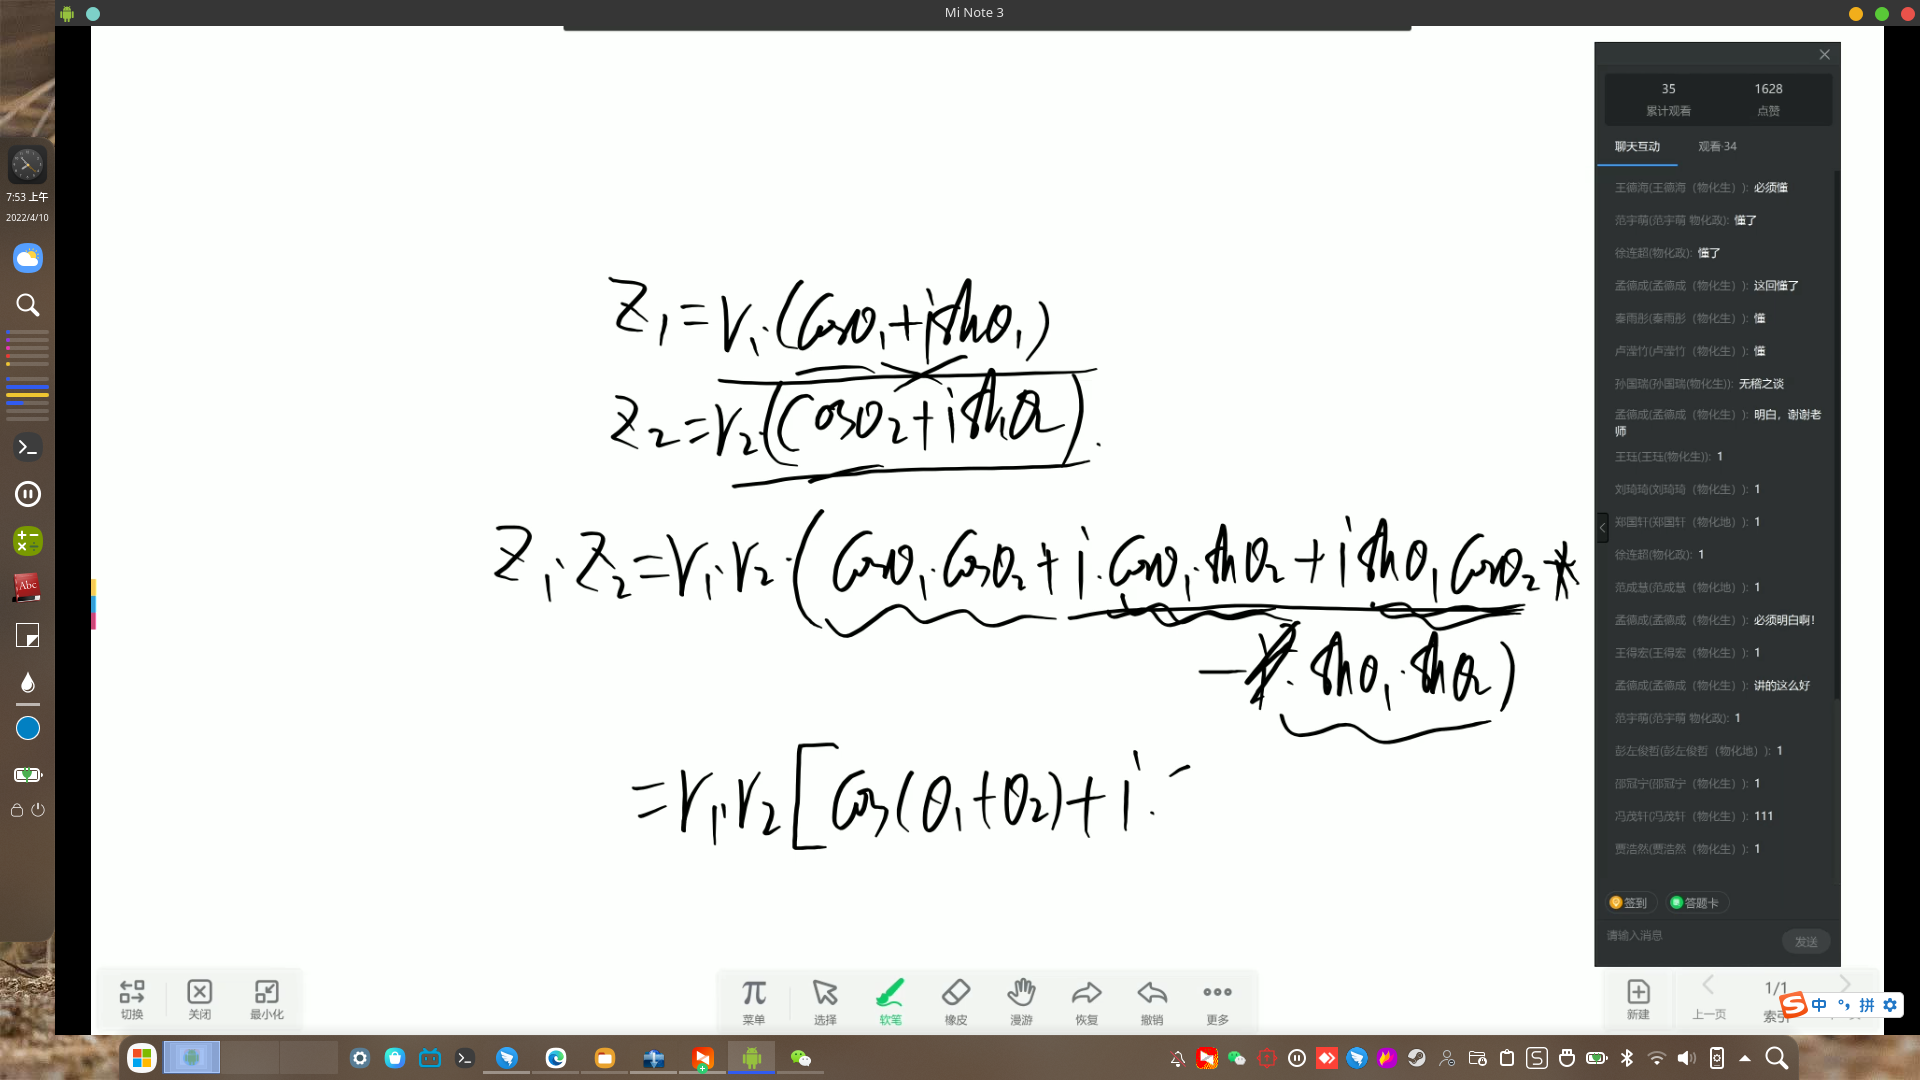 Mi Note 3
35 1628
累计观看 点赞
聊天互动 观看·34
7:53 上午
2022/4/10
Z₁=r₁·(cosθ₁+isinθ₁)
Z₂=r₂(cosθ₂+isinθ₂).
Z₁·Z₂=r₁·r₂·(cosθ₁·cosθ₂+i·cosθ₁·sinθ₂+isinθ₁cosθ₂
-·sinθ₁·sinθ₂)
=r₁·r₂[cos(θ₁+θ₂)+i·
王德海(王德海（物化生）): 必须懂
范宇萌(范宇萌 物化政): 懂了
徐连超(物化政): 懂了
孟德成(孟德成（物化生）): 这回懂了
秦雨彤(秦雨彤（物化生）): 懂
卢滢竹(卢滢竹（物化生）): 懂
孙国瑞(孙国瑞(物化生)): 无稽之谈
孟德成(孟德成（物化生）): 明白，谢谢老
师
王珏(王珏(物化生)): 1
刘琦琦(刘琦琦（物化生）): 1
郑国轩(郑国轩（物化地）): 1
徐连超(物化政): 1
范成慧(范成慧（物化地）): 1
孟德成(孟德成（物化生）): 必须明白啊!
王得宏(王得宏（物化生）): 1
孟德成(孟德成（物化生）): 讲的这么好
范宇萌(范宇萌 物化政): 1
彭左俊哲(彭左俊哲（物化地）): 1
邵冠宁(邵冠宁（物化生）): 1
冯茂轩(冯茂轩（物化生）): 111
贾浩然(贾浩然（物化生）): 1
签到 答题卡
请输入消息
发送
切换 关闭 最小化
π
菜单 选择 软笔 橡皮 漫游 恢复 撤销 更多
新建 上一页 1/1
索引
S 中 °, 拼
Abc